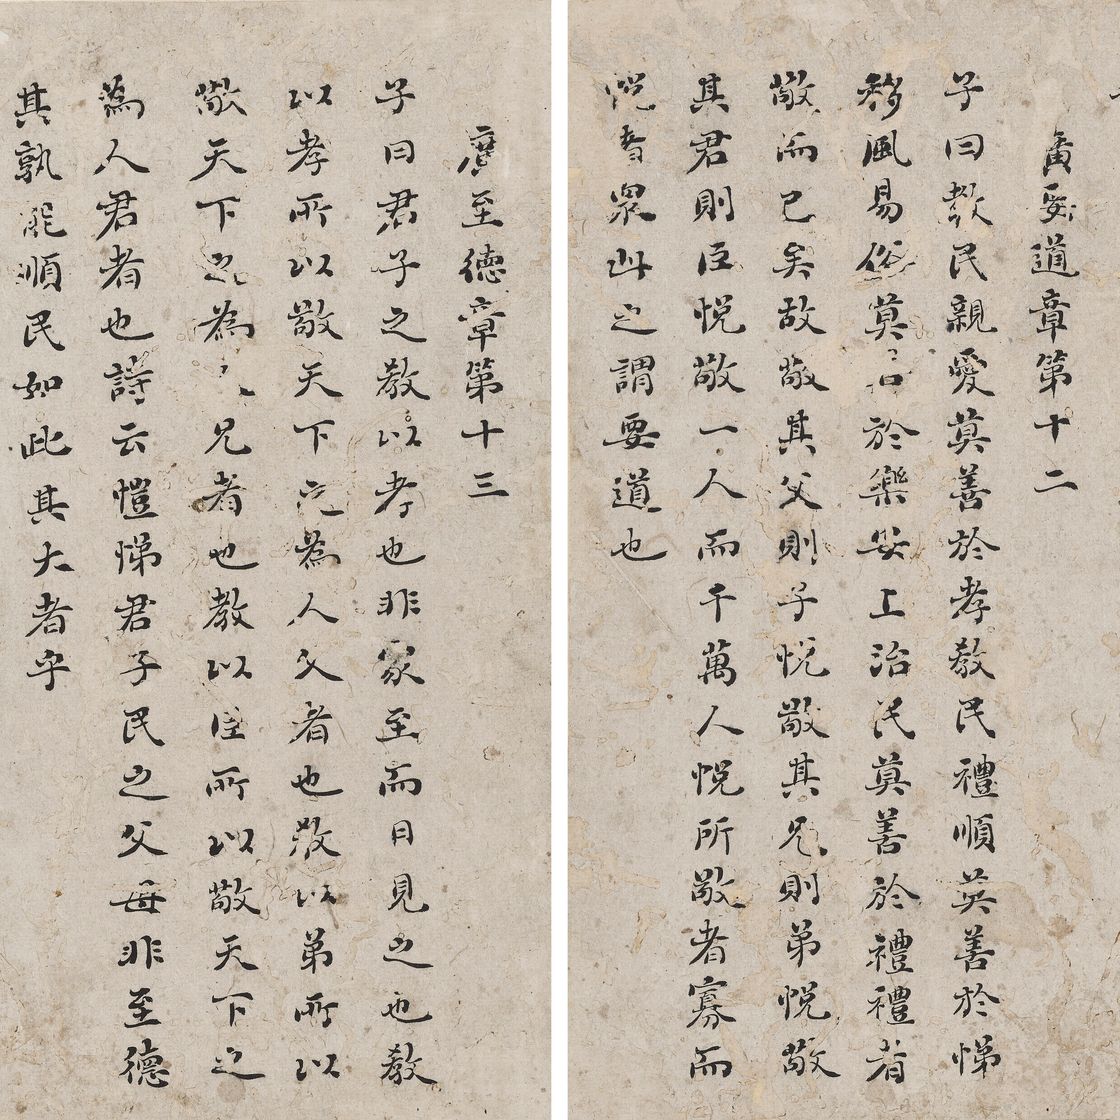 廣要道章第十二
子曰教民親愛莫善於孝教民禮順莫善於悌
移風易俗莫善於樂安上治民莫善於禮禮者
敬而已矣故敬其父則子悅敬其兄則弟悅敬
其君則臣悅敬一人而千萬人悅所敬者寡而
悅者眾此之謂要道也
廣至德章第十三
子曰君子之教以孝也非家至而日見之也教
以孝所以敬天下之為人父者也教以弟所以
敬天下之為人兄者也教以臣所以敬天下之
為人君者也詩云愷悌君子民之父母非至德
其孰能順民如此其大者乎